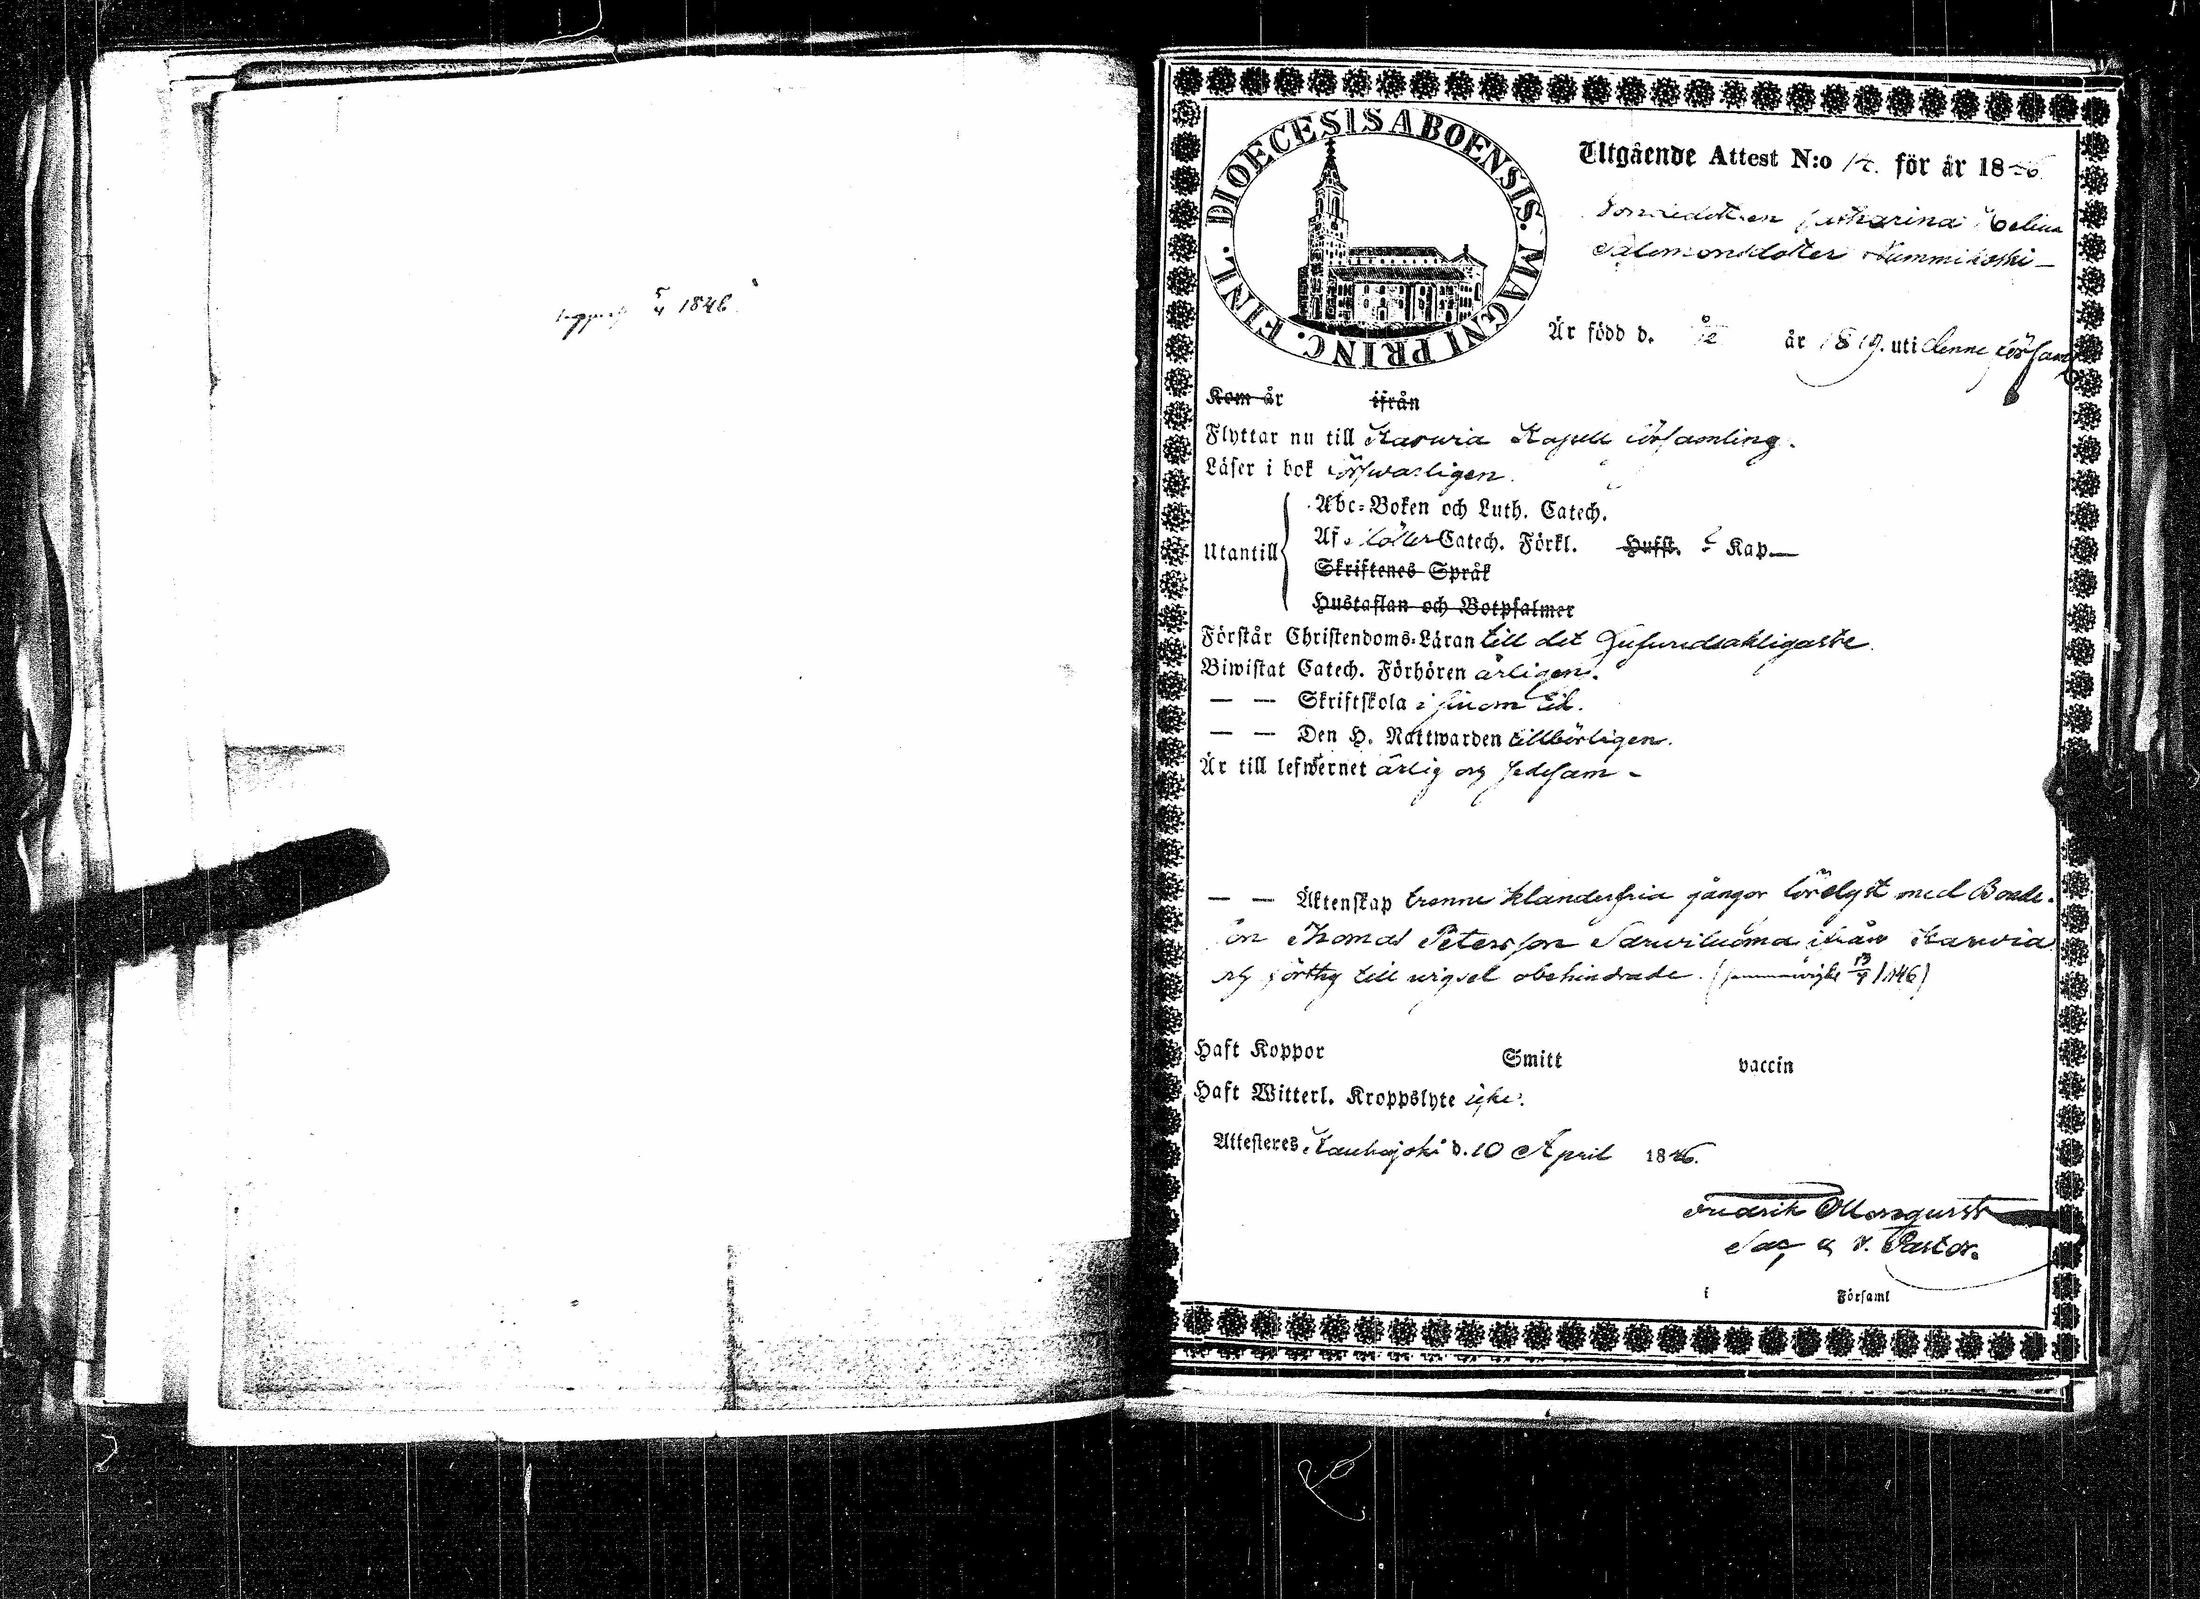 5/4 1846
DIOECESIS ABOENSIS. MAGNI PRINC. FINL.
Utgående Attest N:o 14. för år 1846
Catharina Helena
Salomonsdoter Nummikoski
Är född d. år 1819. uti denne församl
Kom år ifrån
Flyttar nu till Karvia Kapell församling.
Läser i bok försvarligen.
Utantill
Abc-Boken och Luth. Catech.
Af Catech. Förkl. Hufst. Kap
Skriftenes Språk
Hustaflan och Botpsalmer
Förstår Christendoms-Läran till det hufvudsakligaste.
Biwistat Catech. Förhören årligen.
— — Skriftskola i sinom tid.
— — Den H. Nattwarden tillbörligen.
Är till lefwernet ärlig och sedesam
— — Äktenskap trenne klanderfria gångor lördlyst med Bonde-
son Thomas Petersson Sarviluoma ifrån Karvia
och förthy till wigsel obehindrade. (sammanvigde 13/4 1846)
Haft Koppor Smitt vaccin
Haft Witterl. Kroppslyte icke.
Attesteres Kauhajoki d. 10 April 1846.
Fredrik
Sac. V. Pastor.
i Församl